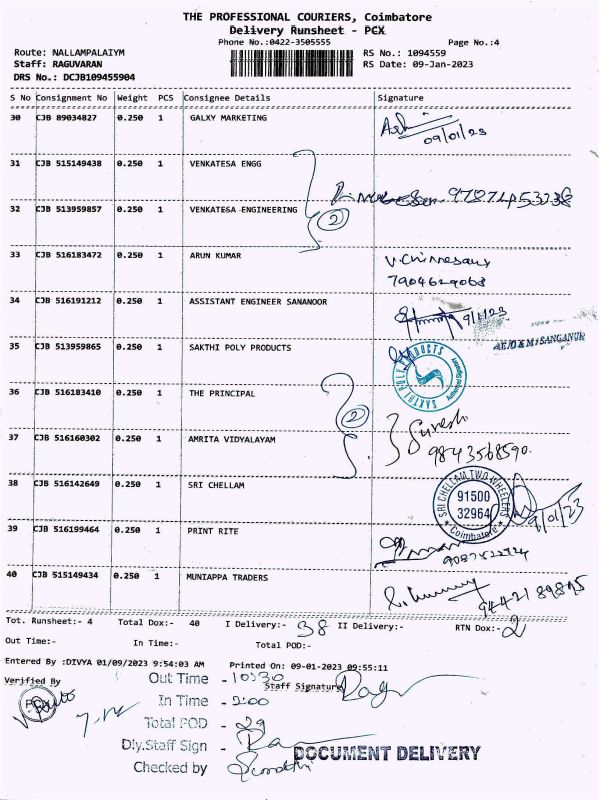 THE PROFESSIONAL COURIERS, Coimbatore
Delivery Runsheet - PCX
Phone No.:0422-3505555 Page No.:4
Route: NALLAMPALAIYM RS No.: 1094559
Staff: RAGUVARAN RS Date: 09-Jan-2023
DRS No.: DCJB109455904
S No Consignment No Weight PCS Consignee Details Signature
30 CJB 89034827 0.250 1 GALXY MARKETING
09/01/23
31 CJB 515149438 0.250 1 VENKATESA ENGG
32 CJB 513959857 0.250 1 VENKATESA ENGINEERING 2
33 CJB 516183472 0.250 1 ARUN KUMAR
7904629068
34 CJB 516191212 0.250 1 ASSISTANT ENGINEER SANANOOR
9/1/23
AE/O & M / SANGANUR
35 CJB 513959865 0.250 1 SAKTHI POLY PRODUCTS
SAKTHI POLY PRODUCTS
36 CJB 516183410 0.250 1 THE PRINCIPAL
2
Suresh
37 CJB 516160302 0.250 1 AMRITA VIDYALAYAM
9843568590
38 CJB 516142649 0.250 1 SRI CHELLAM
SRI CHELLAM TWO WHEELERS
91500
32964
Coimbatore
9/01/23
39 CJB 516199464 0.250 1 PRINT RITE
40 CJB 515149434 0.250 1 MUNIAPPA TRADERS
Tot. Runsheet:- 4 Total Dox:- 40 I Delivery:- 38 II Delivery:- RTN Dox:- 2
Out Time:- In Time:- Total POD:-
Entered By :DIVYA 01/09/2023 9:54:03 AM Printed On: 09-01-2023 09:55:11
Verified By Out Time - 10:30 Staff Signature
In Time - 2:00
Total POD - 29
Dly.Staff Sign -
DOCUMENT DELIVERY
Checked by